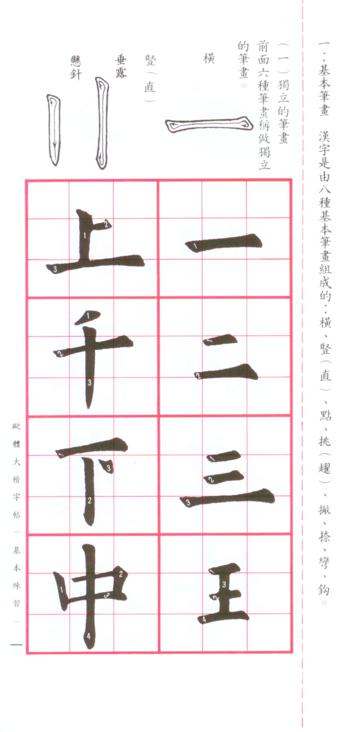 一：基本筆畫　漢字是由八種基本筆畫組成的：橫、豎（直）、點、挑（趯）、撇、捺、彎、鈎。
（一）獨立的筆畫
前面六種筆畫稱做獨立
的筆畫。
橫
一二三王
豎（直）
垂露
懸針
上千下中
歐體大楷字帖（基本練習）一